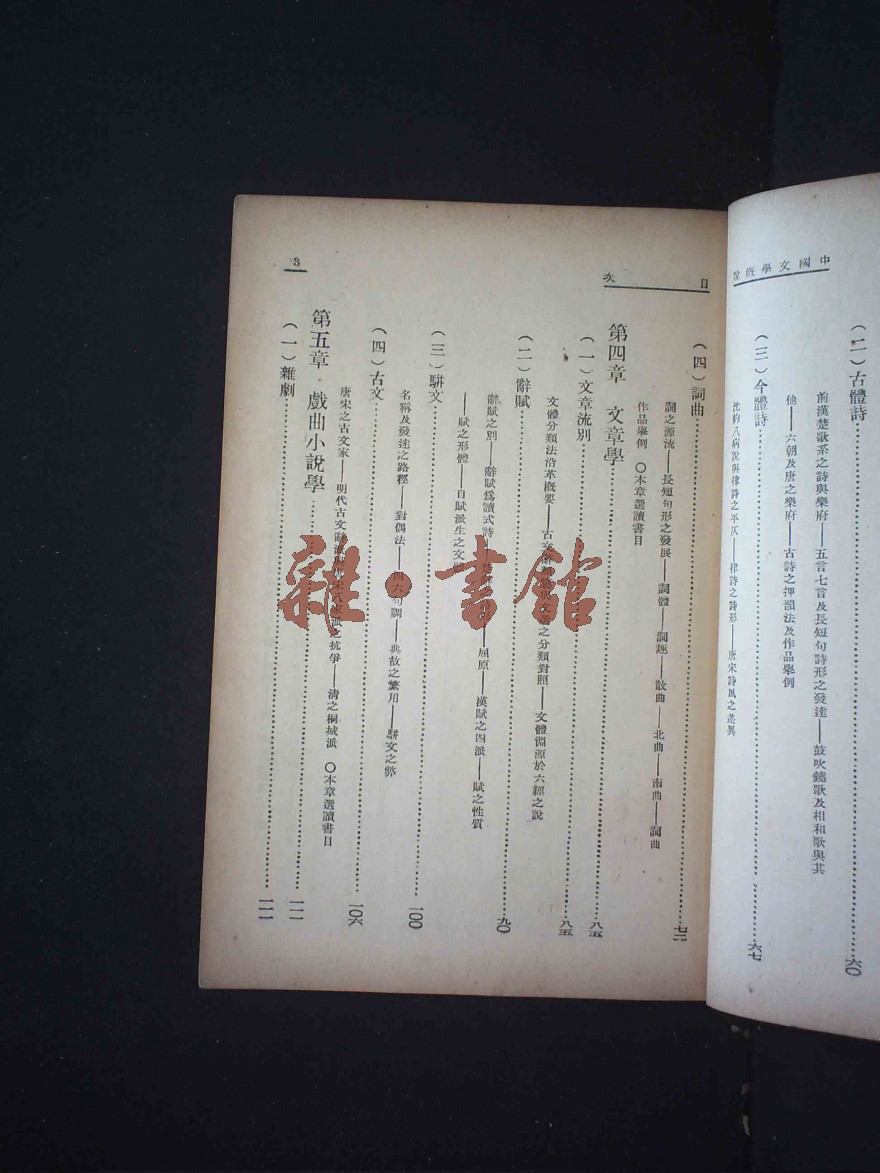 中國文學概說
(二)古體詩……六〇
前漢楚歌系之詩與樂府——五言七言及長短句詩形之發達——鼓吹鐃歌及相和歌與其
他——六朝及唐之樂府——古詩之押韻法及作品舉例
(三)今體詩……六七
沈約八病說與律詩之平仄——律詩之詩形——唐宋詩風之差異
目次
(四)詞曲……七二
詞之源流——長短句形之發展——詞體——詞趣——散曲——北曲——南曲——詞曲
作品舉例 〇本章選讀書目
第四章 文章學……八五
(一)文章流別……八五
文體分類法沿革概要——古文辭 之分類對照——文體淵源於六經之說
(二)辭賦……九〇
辭賦之別——辭賦爲讀式詩 屈原——漢賦之四派——賦之性質
——賦之形體——自賦派生之文
(三)駢文……一〇〇
名稱及發達之路徑——對偶法——四六句調——典故之繁用——駢文之弊
(四)古文……一〇六
唐宋之古文家——明代古文 八家派之抗爭——清之桐城派 〇本章選讀書目
第五章 戲曲小說學……一一一
(一)雜劇……一一一
3
雜·書館